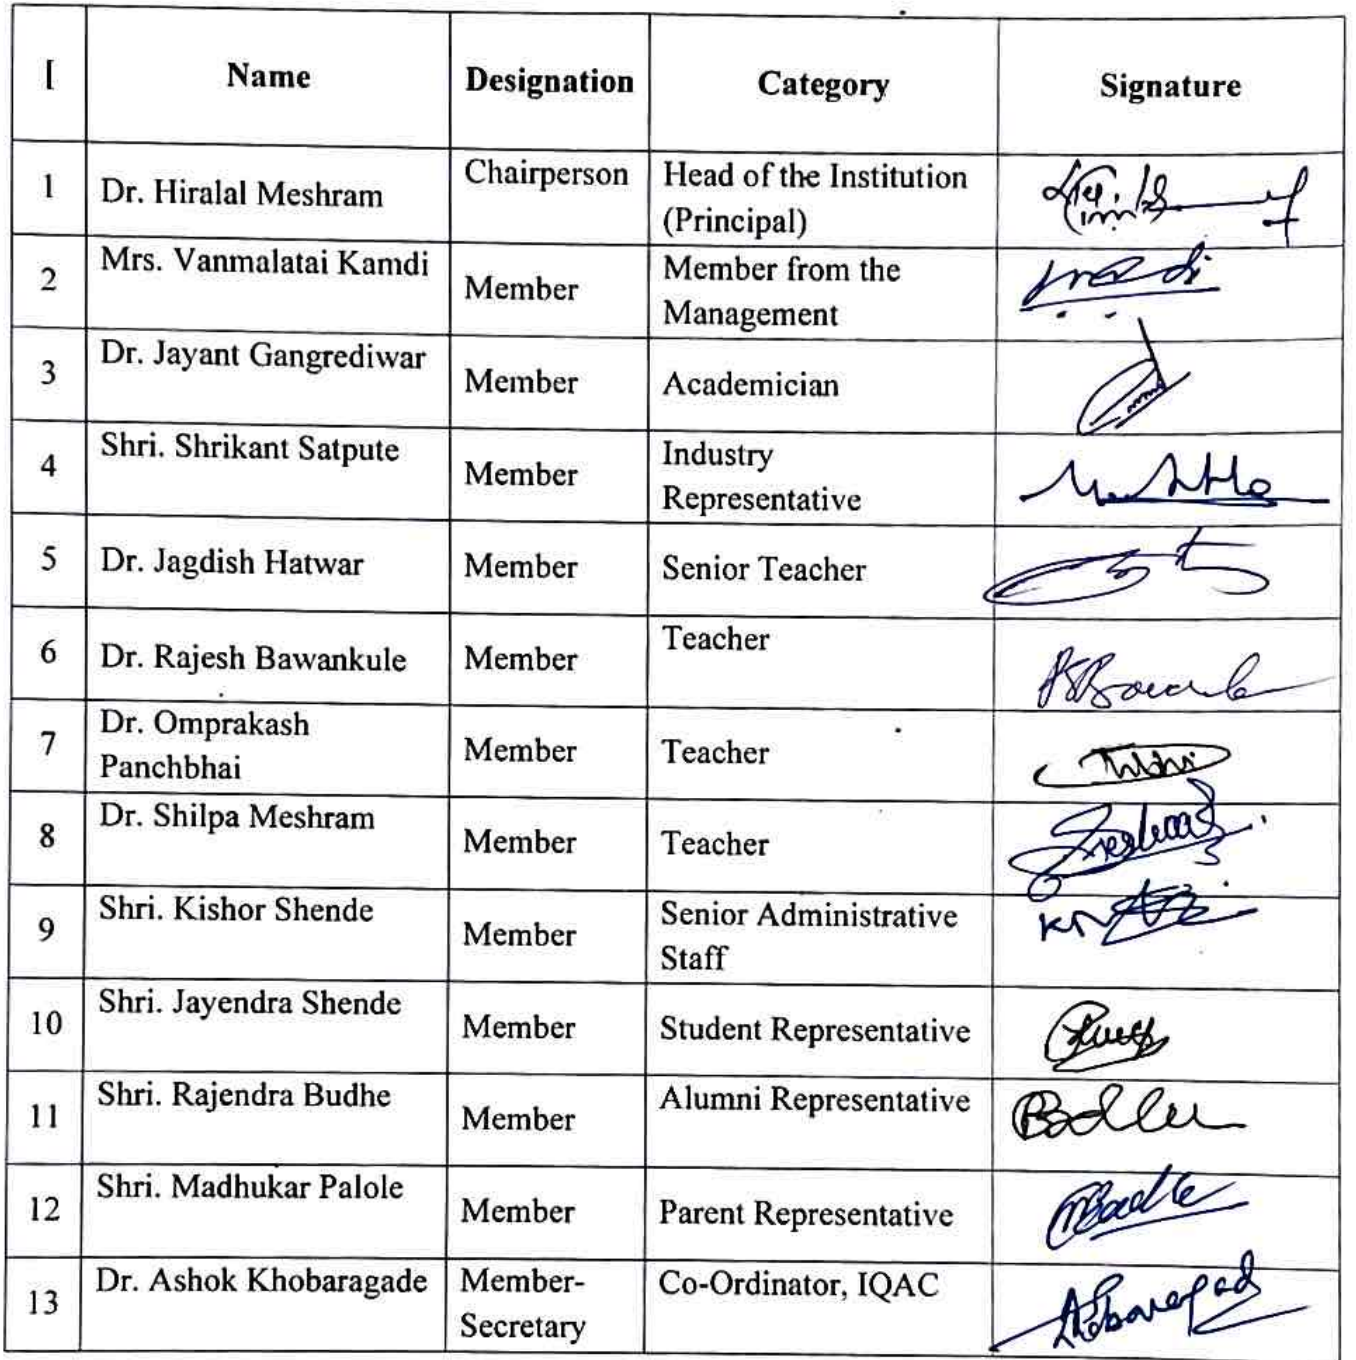 [ Name Designation Category Signature
1 Dr. Hiralal Meshram Chairperson Head of the Institution
(Principal)
2 Mrs. Vanmalatai Kamdi Member Member from the
Management
3 Dr. Jayant Gangrediwar Member Academician
4 Shri. Shrikant Satpute Member Industry
Representative
5 Dr. Jagdish Hatwar Member Senior Teacher
6 Dr. Rajesh Bawankule Member Teacher
7 Dr. Omprakash
Panchbhai Member Teacher
8 Dr. Shilpa Meshram Member Teacher
9 Shri. Kishor Shende Member Senior Administrative
Staff
10 Shri. Jayendra Shende Member Student Representative
11 Shri. Rajendra Budhe Member Alumni Representative
12 Shri. Madhukar Palole Member Parent Representative
13 Dr. Ashok Khobaragade Member-
Secretary Co-Ordinator, IQAC